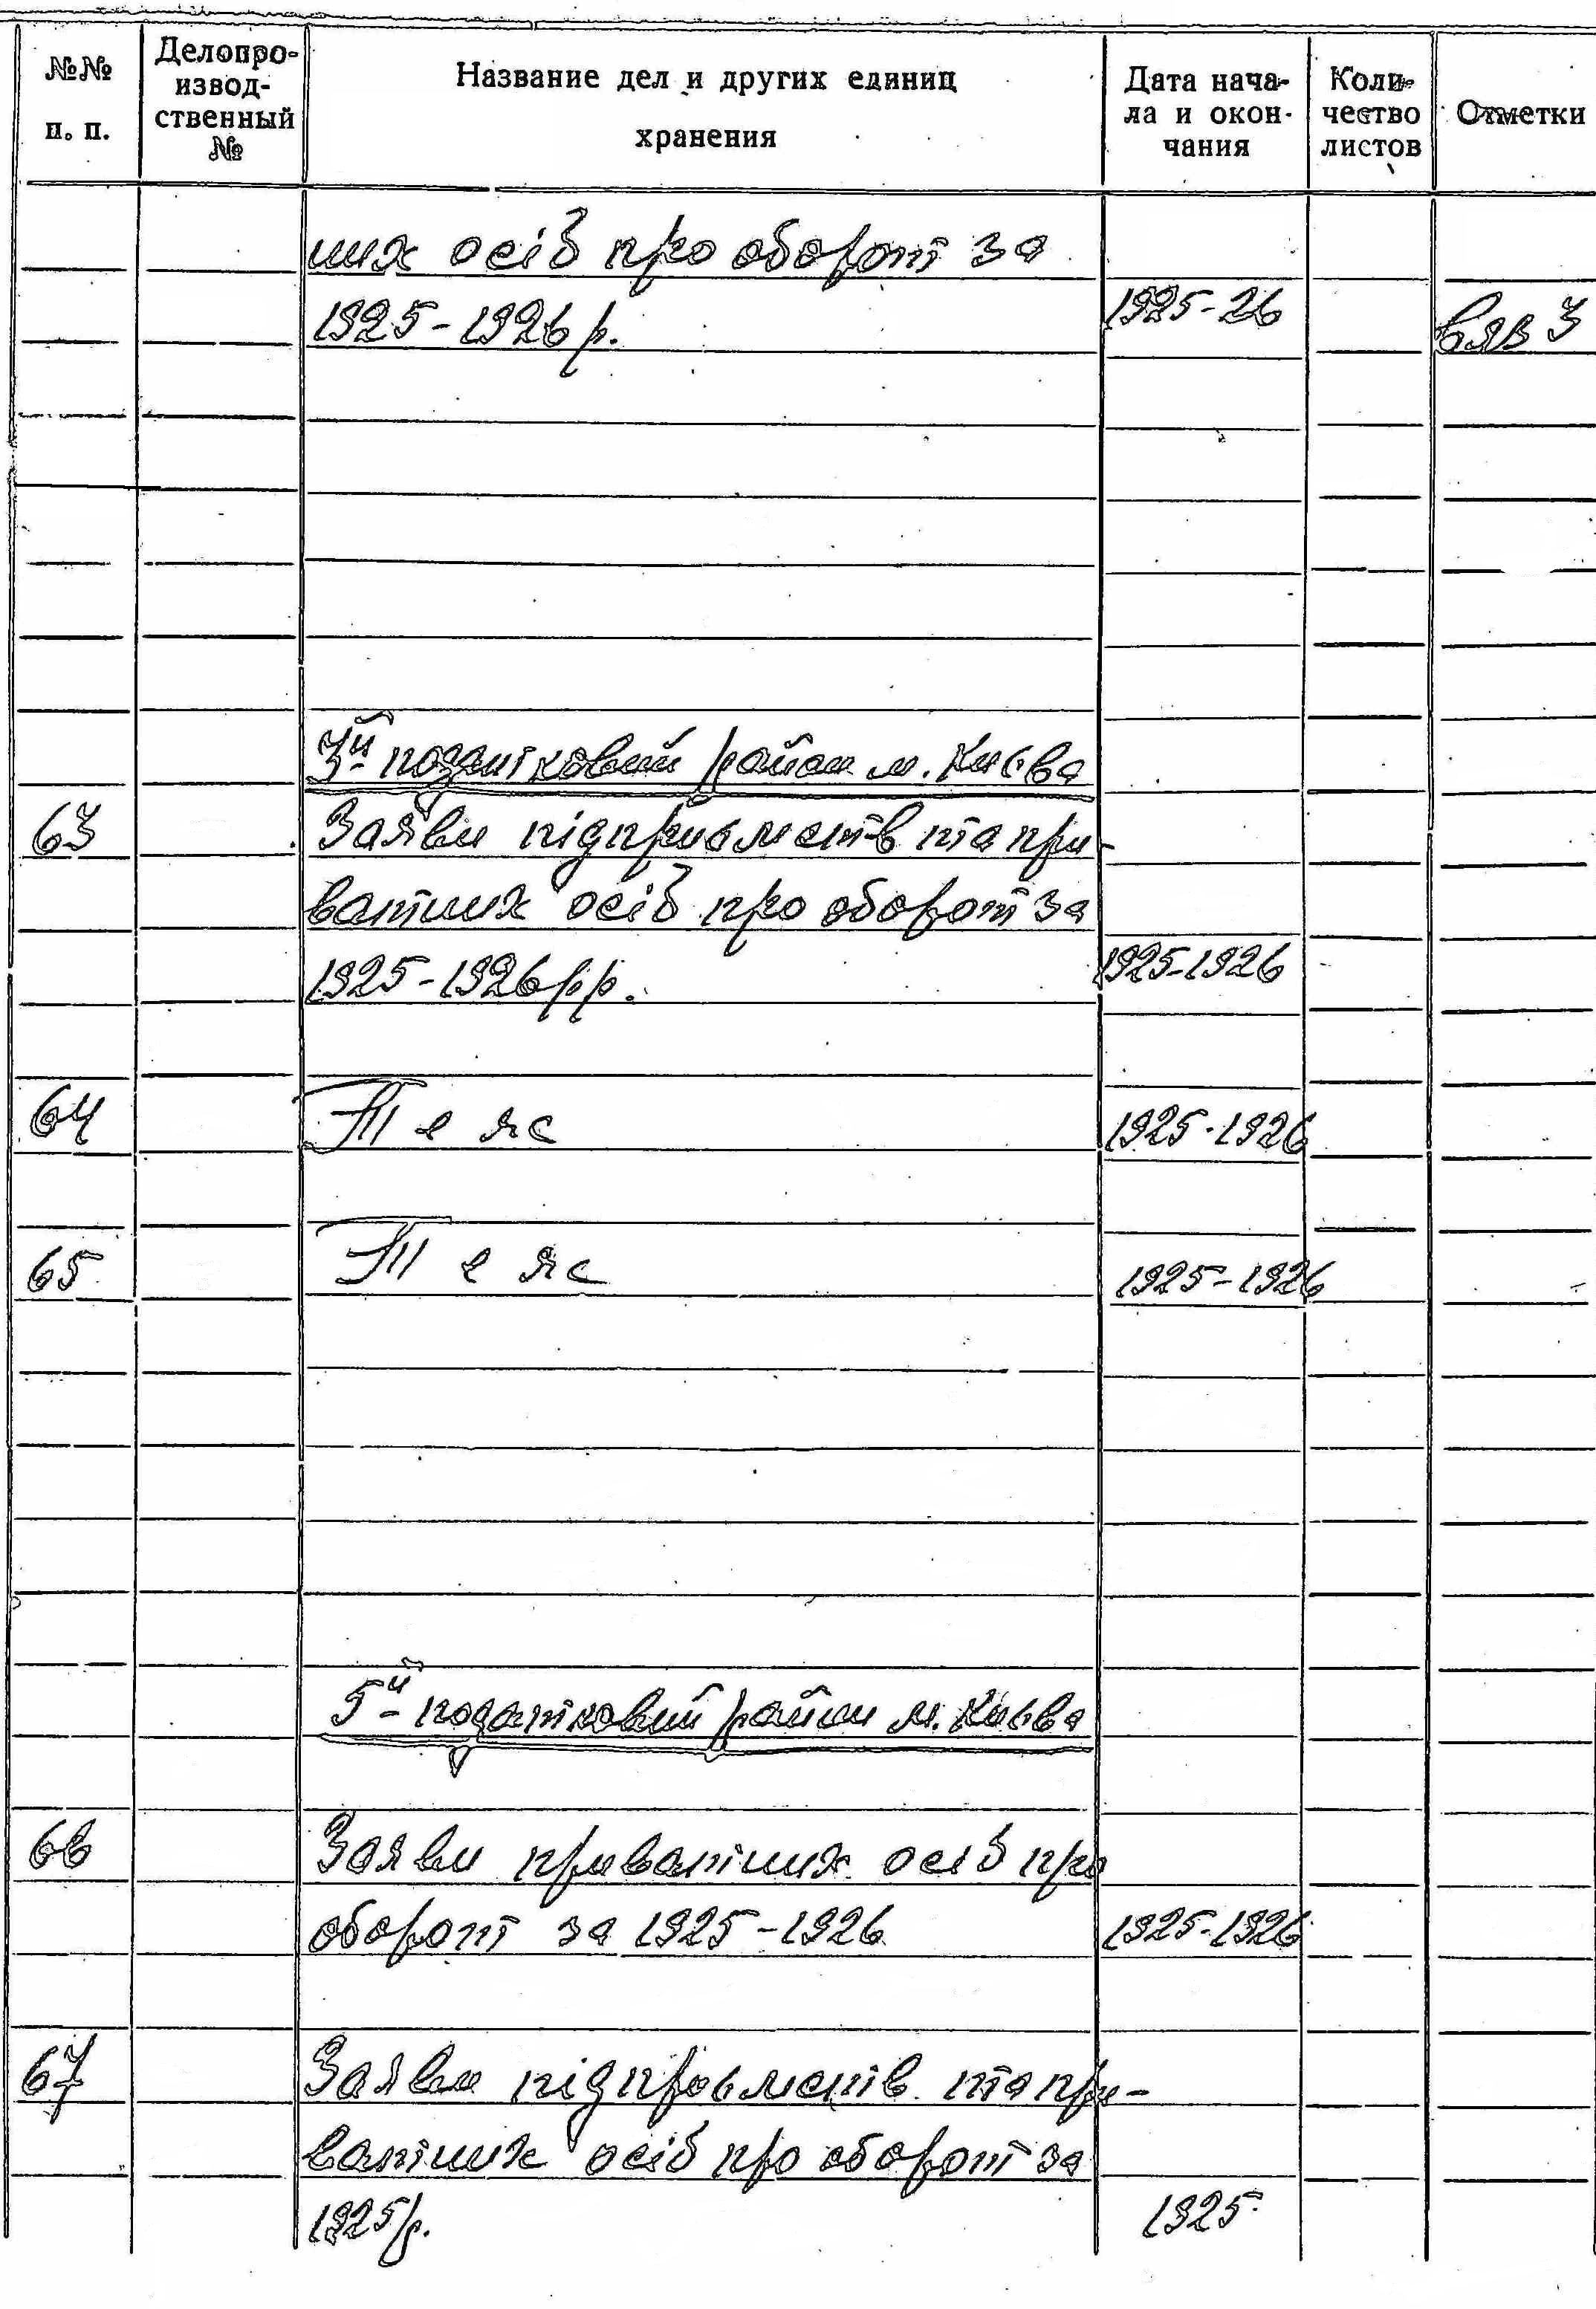 №№ п. п.
Делопро-
извод-
ственный
№
Название дел и других единиц
хранения
Дата нача-
ла и окон-
чания
Коли-
чество
листов
Отметки
них осіб про оборот за
1925-1926 р. 1925-26
3й податковий район м. Києва
63 Заяви підприємств та при-
ватних осіб про оборот за
1925-1926 рр. 1925-1926
64 Те же 1925-1926
65 Те же 1925-1926
5й податковий район м. Києва
66 Заяви приватних осіб про
оборот за 1925-1926 1925-1926
67 Заяви підприємств та при-
ватних осіб про оборот за
1925 р. 1925